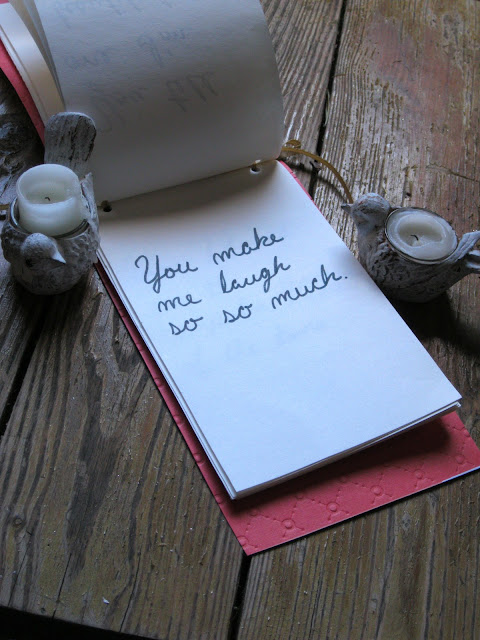 You make
me laugh
so so much.